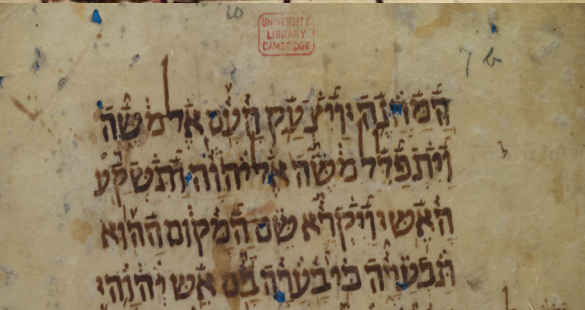 UNIVERSITY
LIBRARY
CAMBRIDGE
7 b
המחנה ויצעק העם אל משה
ויתפלל משה אל יהוה ותשקע
האש ויקרא שם המקום ההוא
תבערה כי בערה בם אש יהוה